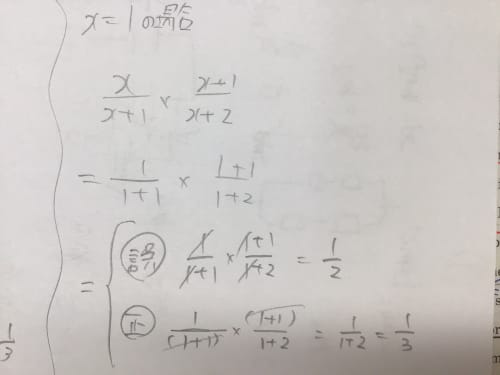 x=1の場合
x/(x+1) × (x+1)/(x+2)
= 1/(1+1) × (1+1)/(1+2)
= { 誤 1/(1+1) × (1+1)/(1+2) = 1/2
正 1/(1+1) × (1+1)/(1+2) = 1/(1+2) = 1/3
1/3